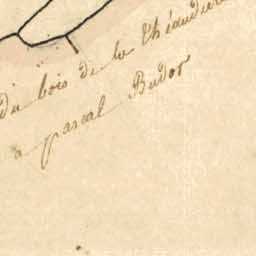 du bois de la Théaudière
a pascal Budor